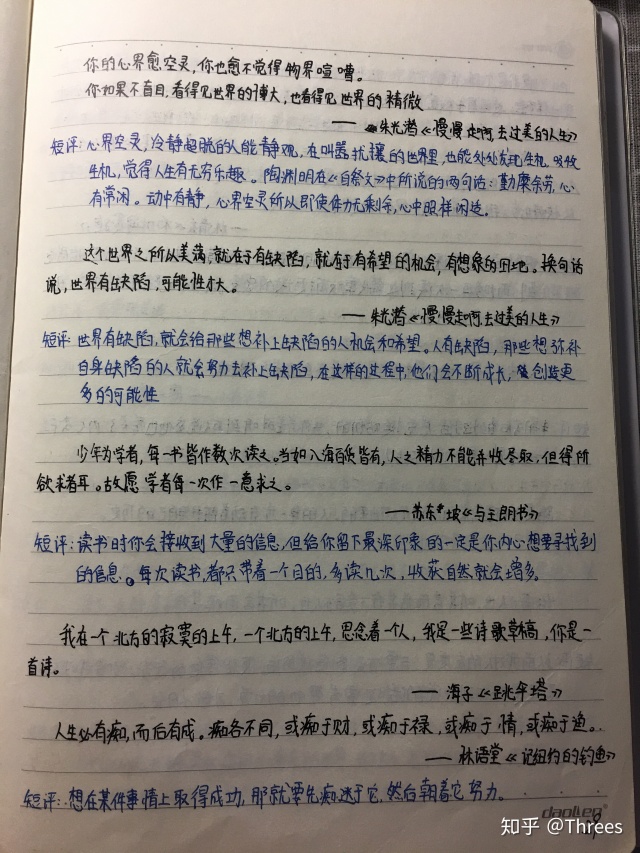 你的心界愈空灵,你也愈不觉得物界喧嘈。
你如果不盲目,看得见世界的博大,也看得见世界的精微
——朱光潜《慢慢走啊 去过美的人生》
短评:心界空灵,冷静超脱的人能静观,在叫嚣扰攘的世界里,也能处处发现生机,吸收
生机,觉得人生有无穷乐趣。陶渊明在《自祭文》中所说的两句话:勤靡余劳,心
有常闲。动中有静,心界空灵所以即使体力无剩余,心中照样闲适。
这个世界之所以美满,就在于有缺陷,就在于有希望的机会,有想象的田地。换句话
说,世界有缺陷,可能性才大。
——朱光潜《慢慢走啊 去过美的人生》
短评:世界有缺陷,就会给那些想补上缺陷的人机会和希望。人有缺陷,那些想弥补
自身缺陷的人就会努力去补上缺陷,在这样的过程中他们会不断成长,创造更
多的可能性
少年为学者,每一书皆作数次读之。当如入海百货皆有,人之精力不能并收尽取,但得所
欲求者耳。故愿学者每一次作一意求之。
——苏东坡《与王朗书》
短评:读书时你会接收到大量的信息,但给你留下最深印象的一定是你内心想要寻找到
的信息。每次读书,都只带着一个目的,多读几次,收获自然就会增多。
我在一个北方的寂寞的上午,一个北方的上午,思念着一个人,我是一些诗歌草稿,你是一
首诗。
——海子《跳伞塔》
人生必有痴,而后有成。痴各不同,或痴于财,或痴于禄,或痴于情,或痴于渔。
——林语堂《记纽约的钓鱼》
短评:想在某件事情上取得成功,那就要先痴迷于它,然后朝着它努力。
知乎 @Threes